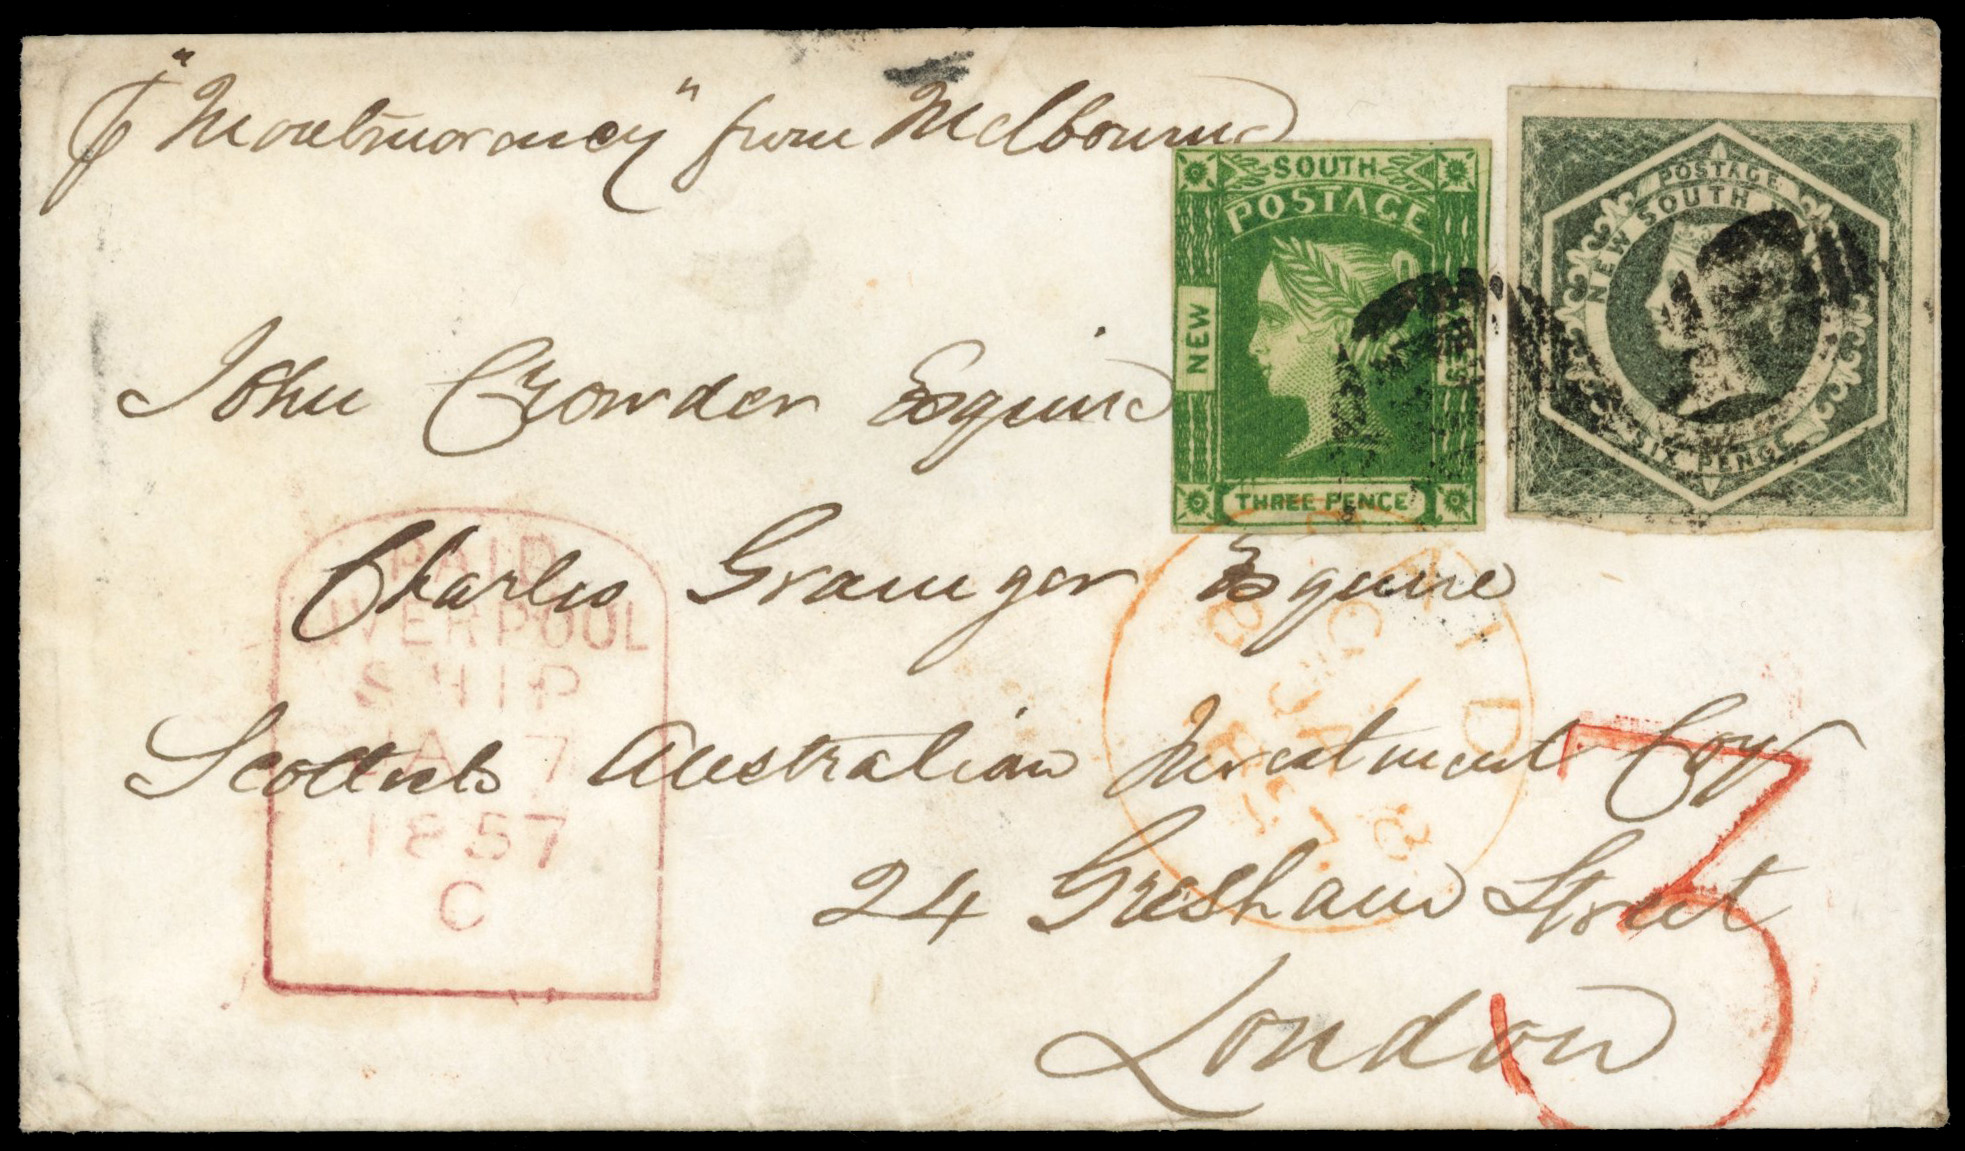 p "Montmorancy" from Melbourne
SOUTH
POSTAGE
NEW
THREE PENCE
POSTAGE
NEW SOUTH
SIX PENCE
John Crowder Esquire
Charles Grainger Esquire
Scottish Australian Investment Coy
24 Gresham Street
London
PAID
LIVERPOOL
SHIP
JA 7
1857
C
PAID
3